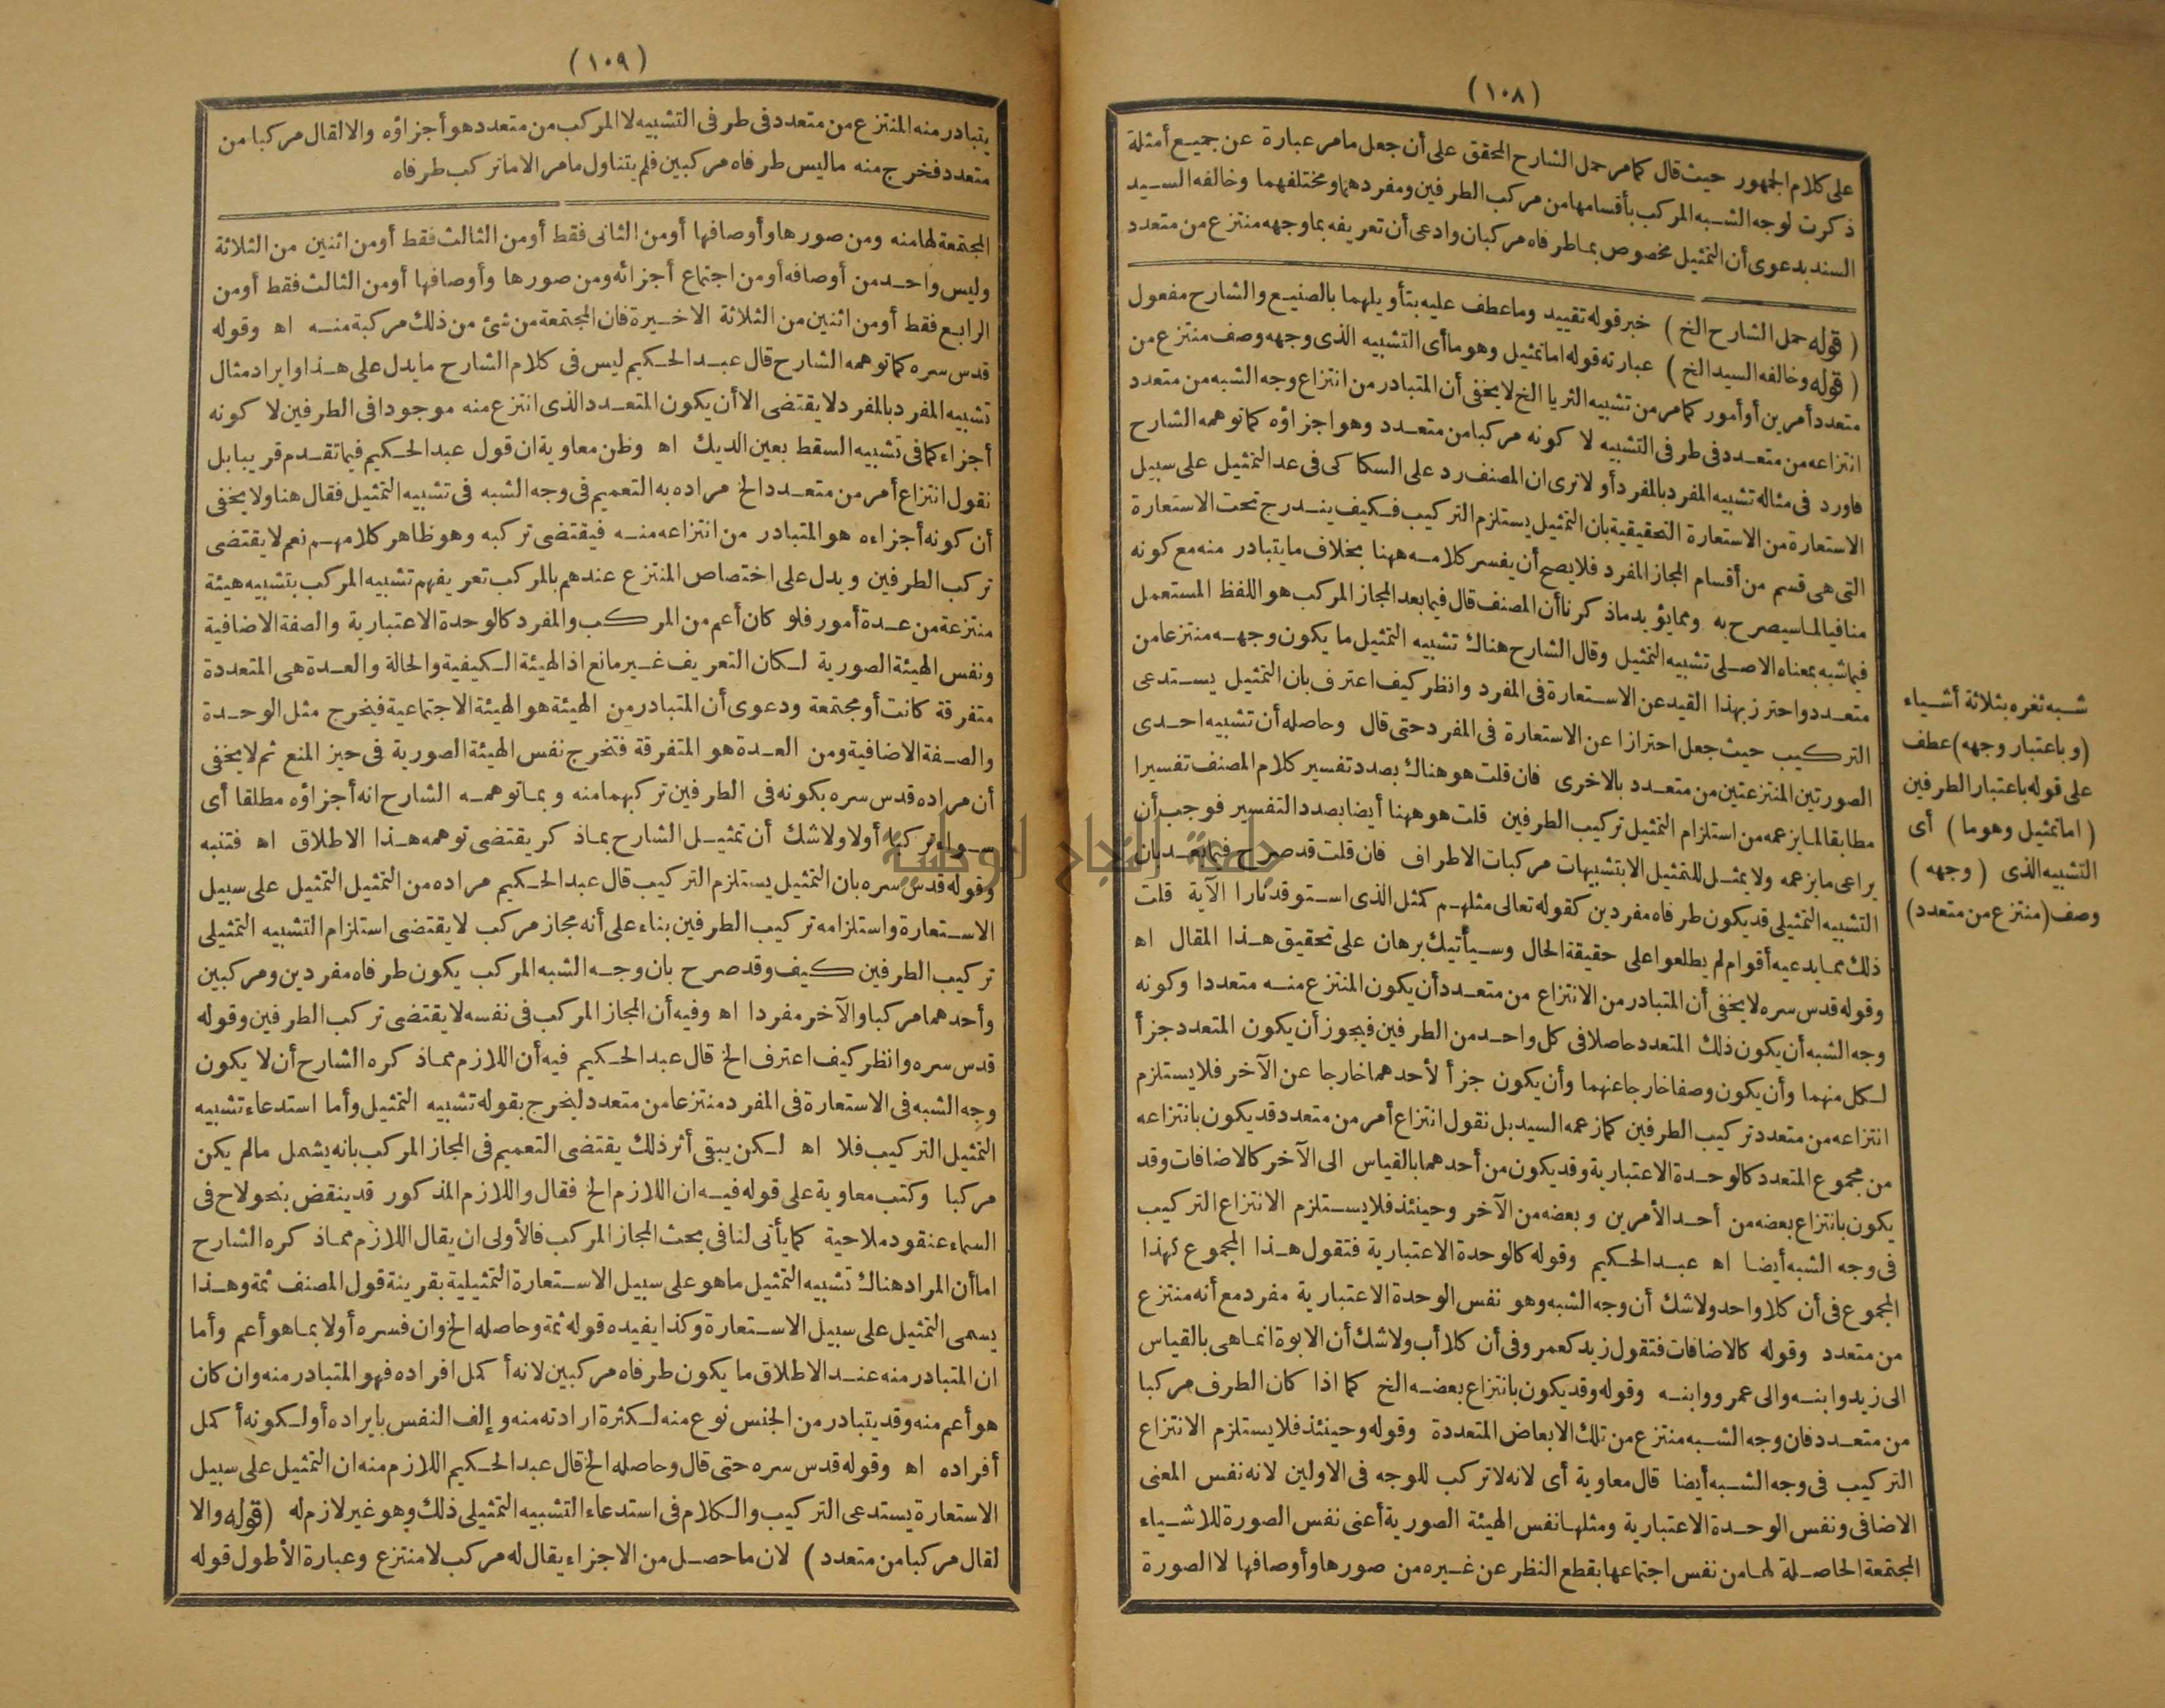 (١٠٨)
على كلام الجمهور حيث قال كما مر حمل الشارح المحقق على أن جعل ما مر عبارة عن جميع أمثلة
ذكرت لوجه الشبه المركب بأقسامها من مركب الطرفين ومفردهما ومختلفهما وخالفه السيد
السند بدعوى أن التمثيل مخصوص بما طرفاه مركبان وادعى أن تعريفه بما وجهه منتزع من متعدد
(قوله حمل الشارح الخ) خبر قوله تقييد وما عطف عليه بتأويلهما بالصنيع والشارح مفعول
(قوله وخالفه السيد الخ) عبارته قوله اما تمثيل وهو ما أى التشبيه الذى وجهه وصف منتزع من
متعدد أمرين أو أمور كما مر من تشبيه الثريا الخ لا يخفى أن المتبادر من انتزاع وجه الشبه من متعدد
انتزاعه من متعدد فى طرفى التشبيه لا كونه مركبا من متعدد وهو اجزاؤه كما توهمه الشارح
فاورد فى مثاله تشبيه المفرد بالمفرد أو لا ترى ان المصنف رد على السكاكى فى عد التمثيل على سبيل
الاستعارة من الاستعارة التحقيقية بان التمثيل يستلزم التركيب فكيف يندرج تحت الاستعارة
التى هى قسم من أقسام المجاز المفرد فلا يصح أن يفسر كلامه ههنا بخلاف ما يتبادر منه مع كونه
منافيا لما سيصرح به ومما يؤيد ما ذكرنا أن المصنف قال فيما بعد المجاز المركب هو اللفظ المستعمل
فيما شبه بمعناه الاصلى تشبيه التمثيل وقال الشارح هناك تشبيه التمثيل ما يكون وجهه منتزعا من
متعدد واحترز بهذا القيد عن الاستعارة فى المفرد وانظر كيف اعترف بان التمثيل يستدعى
التركيب حيث جعل احترازا عن الاستعارة فى المفرد حتى قال وحاصله أن تشبيه احدى
الصورتين المنتزعتين من متعدد بالاخرى فان قلت هو هناك بصدد تفسير كلام المصنف تفسيرا
مطابقا لما يزعمه من استلزام التمثيل تركيب الطرفين قلت هو ههنا أيضا بصدد التفسير فوجب أن
يراعى ما يزعمه ولا يمثل للتمثيل الا بتشبيهات مركبات الاطراف فان قلت قد صرح فيما بعد بان
التشبيه التمثيلى قد يكون طرفاه مفردين كقوله تعالى مثلهم كمثل الذى استوقد نارا الآية قلت
ذلك مما يدعيه أقوام لم يطلعوا على حقيقة الحال وسيأتيك برهان على تحقيق هذا المقال اه
وقوله قدس سره لا يخفى أن المتبادر من الانتزاع من متعدد أن يكون المنتزع منه متعددا وكونه
وجه الشبه أن يكون ذلك المتعدد حاصلا فى كل واحد من الطرفين فيجوز أن يكون المتعدد جزأ
لكل منهما وأن يكون وصفا خارجا عنهما وأن يكون جزأ لأحدهما خارجا عن الآخر فلا يستلزم
انتزاعه من متعدد تركيب الطرفين كما زعمه السيد بل نقول انتزاع أمر من متعدد قد يكون بانتزاعه
من مجموع المتعدد كالوحدة الاعتبارية وقد يكون من أحدهما بالقياس الى الآخر كالاضافات وقد
يكون بانتزاع بعضه من أحد الأمرين وبعضه من الآخر وحينئذ فلا يستلزم الانتزاع التركيب
فى وجه الشبه أيضا اه عبد الحكيم وقوله كالوحدة الاعتبارية فتقول هذا المجموع كهذا
المجموع فى أن كلا واحد ولا شك أن وجه الشبه وهو نفس الوحدة الاعتبارية مفرد مع أنه منتزع
من متعدد وقوله كالاضافات فتقول زيد كعمرو فى أن كلا أب ولا شك أن الابوة انما هى بالقياس
الى زيد وابنه والى عمرو وابنه وقوله وقد يكون بانتزاع بعضه الخ كما اذا كان الطرف مركبا
من متعدد فان وجه الشبه منتزع من تلك الابعاض المتعددة وقوله وحينئذ فلا يستلزم الانتزاع
التركيب فى وجه الشبه أيضا قال معاوية أى لانه لا تركب للوجه فى الاولين لانه نفس المعنى
الاضافى ونفس الوحدة الاعتبارية ومثلها نفس الهيئة الصورية أعنى نفس الصورة للاشياء
المجتمعة الحاصلة لها من نفس اجتماعها بقطع النظر عن غيره من صورها وأوصافها لا الصورة
شبه ثغره بثلاثة أشياء
(وباعتبار وجهه) عطف
على قوله باعتبار الطرفين
(اما تمثيل وهو ما) أى
التشبيه الذى (وجهه)
وصف (منتزع من متعدد)
(١٠٩)
يتبادر منه المنتزع من متعدد فى طرفى التشبيه لا المركب من متعدد هو أجزاؤه والا لقال مركبا من
متعدد فخرج منه ما ليس طرفاه مركبين فلم يتناول ما مر الا ما تركب طرفاه
المجتمعة لها منه ومن صورها وأوصافها أو من الثانى فقط أو من الثالث فقط أو من اثنين من الثلاثة
وليس واحد من أوصافه أو من اجتماع أجزائه ومن صورها وأوصافها أو من الثالث فقط أو من
الرابع فقط أو من اثنين من الثلاثة الاخيرة فان المجتمعة من شئ من ذلك مركبة منه اه وقوله
قدس سره كما توهمه الشارح قال عبد الحكيم ليس فى كلام الشارح ما يدل على هذا وايراد مثال
تشبيه المفرد بالمفرد لا يقتضى الا أن يكون المتعدد الذى انتزع منه موجودا فى الطرفين لا كونه
أجزاء كما فى تشبيه السقط بعين الديك اه وظن معاوية ان قول عبد الحكيم فيما تقدم قريبا بل
نقول انتزاع أمر من متعدد الخ مراده به التعميم فى وجه الشبه فى تشبيه التمثيل فقال هنا ولا يخفى
أن كونه أجزاءه هو المتبادر من انتزاعه منه فيقتضى تركبه وهو ظاهر كلامهم نعم لا يقتضى
تركب الطرفين ويدل على اختصاص المنتزع عندهم بالمركب تعريفهم تشبيه المركب بتشبيه هيئة
منتزعة من عدة أمور فلو كان أعم من المركب والمفرد كالوحدة الاعتبارية والصفة الاضافية
ونفس الهيئة الصورية لكان التعريف غير مانع اذ الهيئة الكيفية والحالة والعدة هى المتعددة
متفرقة كانت أو مجتمعة ودعوى أن المتبادر من الهيئة هو الهيئة الاجتماعية فيخرج مثل الوحدة
والصفة الاضافية ومن العدة هو المتفرقة فتخرج نفس الهيئة الصورية فى حيز المنع ثم لا يخفى
أن مراده قدس سره بكونه فى الطرفين تركبهما منه وبما توهمه الشارح انه أجزاؤه مطلقا أى
سواء تركبا أولا ولا شك أن تمثيل الشارح بما ذكر يقتضى توهمه هذا الاطلاق اه فتنبه
وقوله قدس سره بان التمثيل يستلزم التركيب قال عبد الحكيم مراده من التمثيل التمثيل على سبيل
الاستعارة واستلزامه تركيب الطرفين بناء على أنه مجاز مركب لا يقتضى استلزام التشبيه التمثيلى
تركيب الطرفين كيف وقد صرح بان وجه الشبه المركب يكون طرفاه مفردين ومركبين
وأحدهما مركبا والآخر مفردا اه وفيه أن المجاز المركب فى نفسه لا يقتضى تركب الطرفين وقوله
قدس سره وانظر كيف اعترف الخ قال عبد الحكيم فيه أن اللازم مما ذكره الشارح أن لا يكون
وجه الشبه فى الاستعارة فى المفرد منتزعا من متعدد ليخرج بقوله تشبيه التمثيل وأما استدعاء تشبيه
التمثيل التركيب فلا اه لكن يبقى أثر ذلك يقتضى التعميم فى المجاز المركب بانه يشمل ما لم يكن
مركبا وكتب معاوية على قوله فيه ان اللازم الخ فقال واللازم المذكور قد ينقض بنحو لاح فى
السماء عنقود ملاحية كما يأتى لنا فى مبحث المجاز المركب فالأولى ان يقال اللازم مما ذكره الشارح
اما أن المراد هناك تشبيه التمثيل ما هو على سبيل الاستعارة التمثيلية بقرينة قول المصنف ثمة وهذا
يسمى التمثيل على سبيل الاستعارة وكذا يفيده قوله ثمة وحاصله الخ وان فسره أولا بما هو أعم وأما
ان المتبادر منه عند الاطلاق ما يكون طرفاه مركبين لانه أكمل افراده فهو المتبادر منه وان كان
هو أعم منه وقد يتبادر من الجنس نوع منه لكثرة ارادته منه وإلف النفس بايراده أو لكونه أكمل
أفراده اه وقوله قدس سره حتى قال وحاصله الخ قال عبد الحكيم اللازم منه ان التمثيل على سبيل
الاستعارة يستدعى التركيب والكلام فى استدعاء التشبيه التمثيلى ذلك وهو غير لازم له (قوله والا
لقال مركبا من متعدد) لان ما حصل من الاجزاء يقال له مركب لا منتزع وعبارة الأطول قوله
جامعة النجاح الوطنية